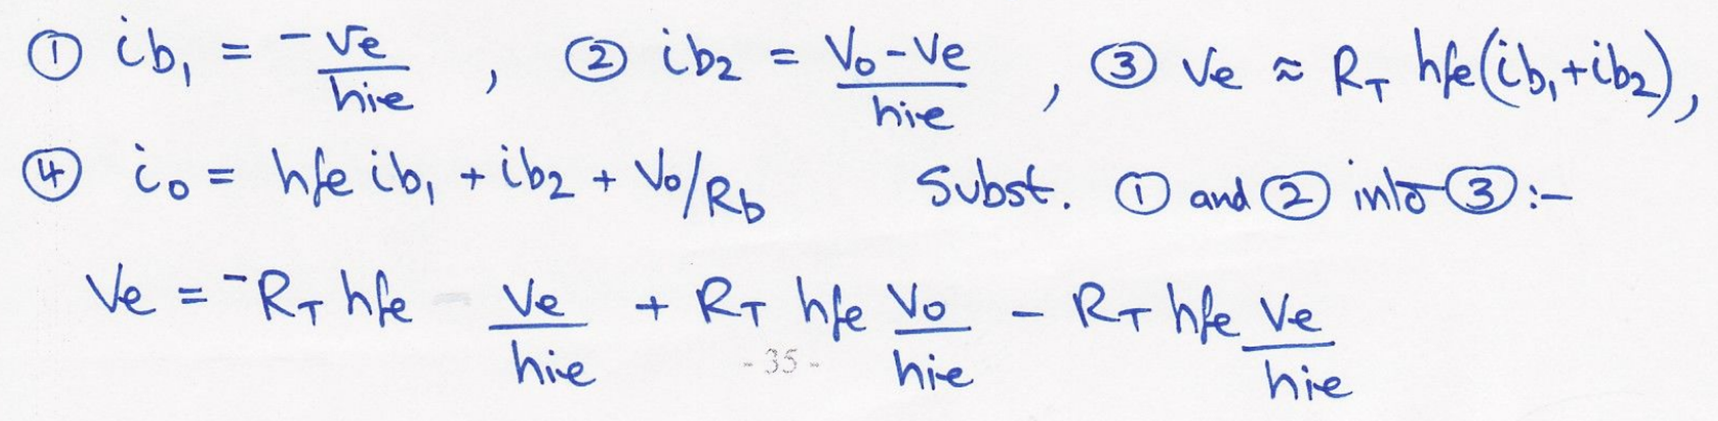 ① ib₁ = -Ve/hie , ② ib₂ = Vo-Ve/hie , ③ Ve ≈ R_T hfe(ib₁+ib₂),
④ io = hfe ib₁ + ib₂ + Vo/Rb Subst. ① and ② into ③:-
Ve = -R_T hfe Ve/hie + R_T hfe Vo/hie - R_T hfe Ve/hie
- 35 -